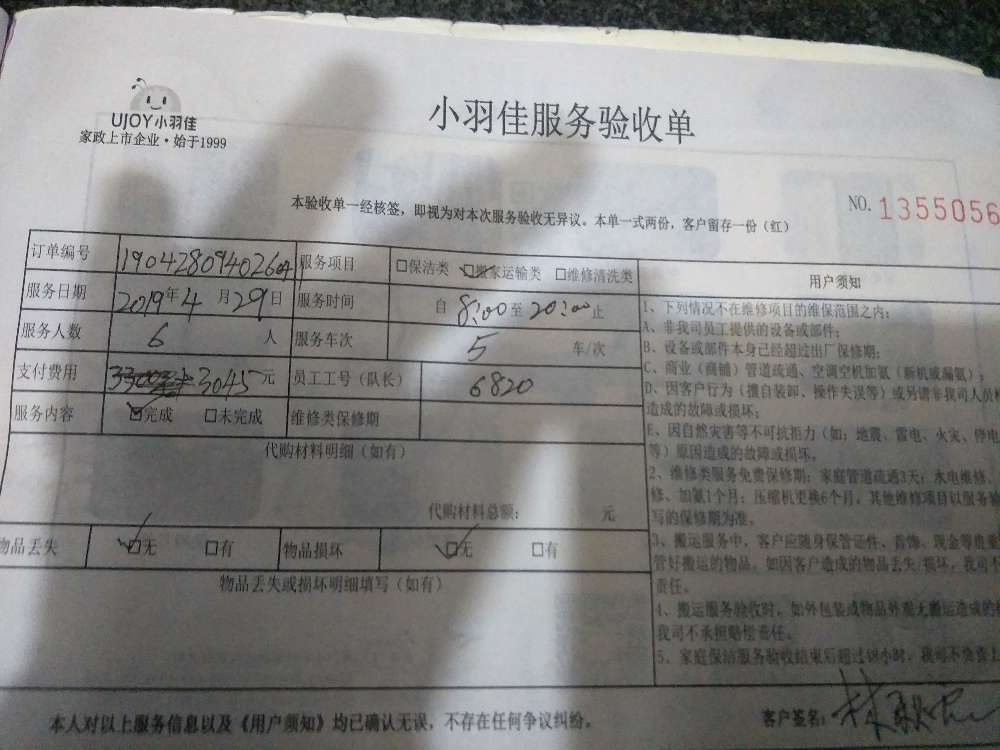 UJOY小羽佳
家政上市企业·始于1999
小羽佳服务验收单
本验收单一经核签，即视为对本次服务验收无异议。本单一式两份，客户留存一份（红）
NO. 1355056
订单编号 190428094026 服务项目 □保洁类 ☑搬家运输类 □维修清洗类
服务日期 2019年4月29日 服务时间 自 8:00 至 20:00 止
服务人数 6 人 服务车次 5 车/次
支付费用 3045 元 员工工号（队长） 6820
服务内容 ☑完成 □未完成 维修类保修期
代购材料明细（如有）
代购材料总额： 元
物品丢失 ☑无 □有 物品损坏 ☑无 □有
物品丢失或损坏明细填写（如有）
用户须知
1、下列情况不在维修项目的维保范围之内：
A、非我司员工提供的设备或部件；
B、设备或部件本身已经超过出厂保修期；
C、商业（商铺）管道疏通、空调空机加氨（新机或漏氨）；
D、因客户行为（擅自装卸、操作失误等）或另请非我司人员
造成的故障或损坏；
E、因自然灾害等不可抗拒力（如：地震、雷电、火灾、停电
等）原因造成的故障或损坏。
2、维修类服务免费保修期：家庭管道疏通3天；水电维修、
修、加氨1个月；压缩机更换6个月，其他维修项目以服务
写的保修期为准。
3、搬运服务中，客户应随身保管证件、首饰、现金等贵重
管好搬运的物品。如因客户造成的物品丢失/损坏，我司不
责任。
4、搬运服务验收时，如外包装或物品外观无搬运造成的
我司不承担赔偿责任。
5、家庭保洁服务验收结束后超过48小时，我司不负责上
本人对以上服务信息以及《用户须知》均已确认无误，不存在任何争议纠纷。
客户签名：